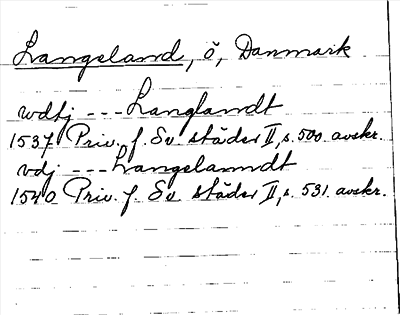 Langeland, ö, Danmark
wdtj --- Langlandt
1537 Priv. f. Sv. städer II, s. 500. avskr.
vdj --- Langelanndt
1540 Priv. f. Sv städer II, s. 531. avskr.